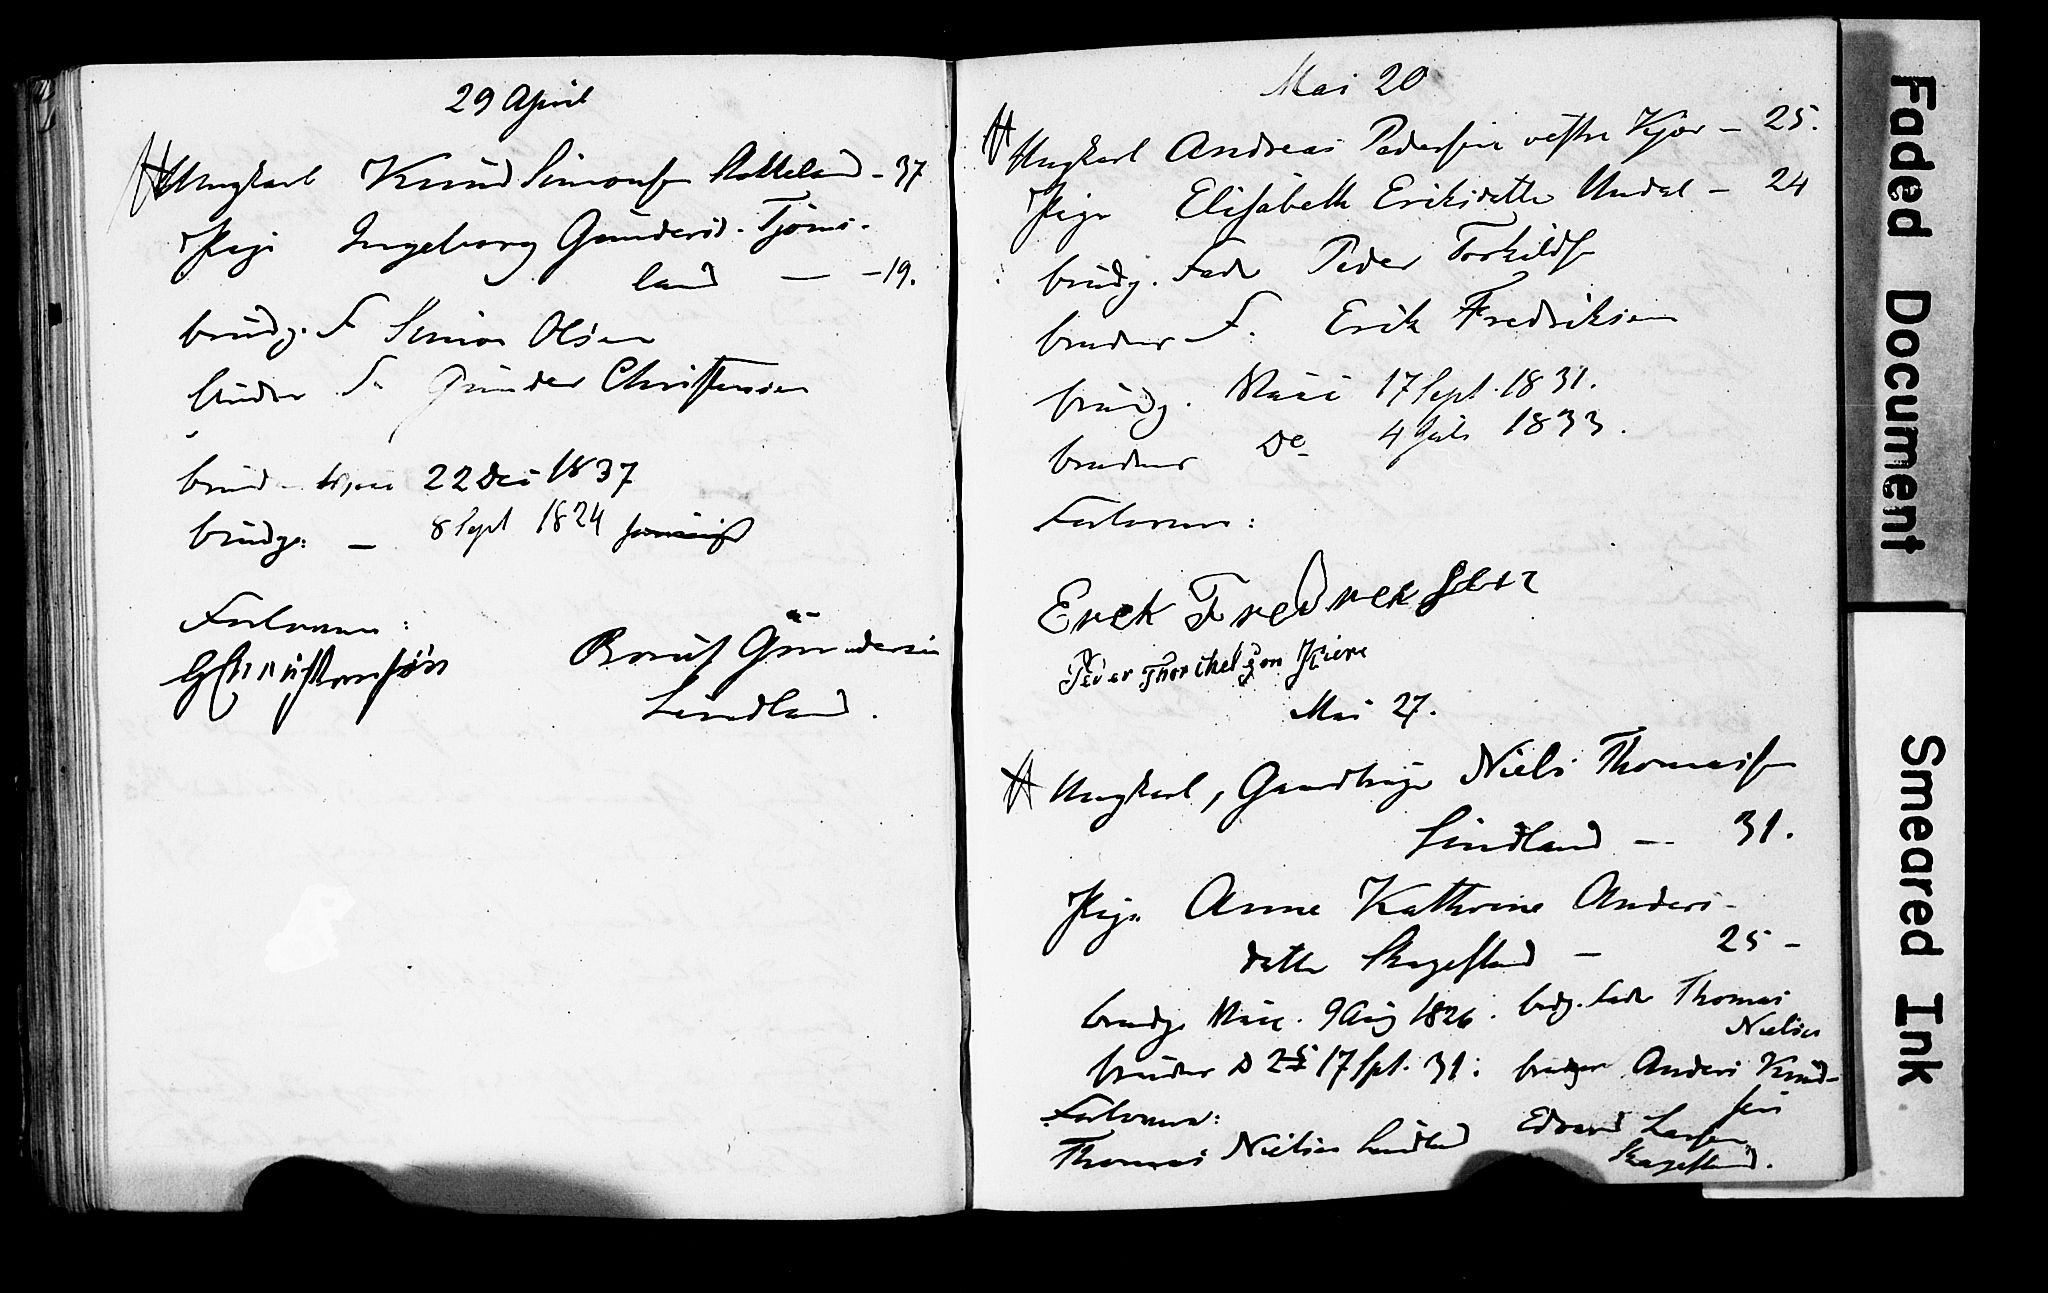 29 April
Ungkarl Knud Simonsen Skatteland - 37
Pige Ingeborg Gundersd. Tjöms-
land — - 19.
brudg. F Simon Olsen
bruden F. Gunder Christensen
brud - 22 Dec 1837
brudg: — 8 Sept 1824
Forlovere:
GChristensön Boruf Gundersen
Lindland.
Mai 20
Ungkarl Andreas Pedersen vestre Kjær - 25.
Pige Elisabeth Eriksdatter Undal - 24
brudg. Fader Peder Torkilds.
brudens F. Erik Fredriksen
brudg. Vacc 17 Sept. 1831.
brudens Do 4 Juli 1833.
Forlovere:
Erek Fredreksen
Peder Thorchelsen Kiere
Mai 27.
Ungkarl, Gaardbruger Niels Thomassen
Lindland — 31.
Pige Anne Kathrine Anders-
datter Skagestad — 25 -
brudg. Vacc. 9 Aug 1826. brdg. Fader Thomas
Nielsen
bruden D 25 17 Spt. 31. brudens Anders Knud-
sen
Forlovere:
Thomas Nielsen Lindland Edvard Larsen
Skagestad.
Faded Document
Smeared Ink